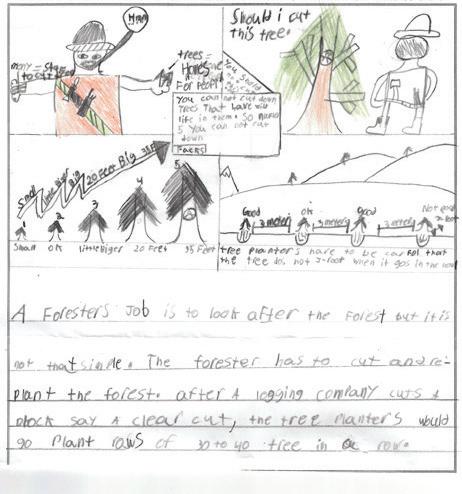 Hmm
Should i cut
this tree.
trees =
Homes
For People
You can not cut down
Trees that have wild
life in them. So number
5 you can not cut
down
Facts
Small little Biger Big 20 Feet Big 35F
1 2 3 4 5
Small Ok little Biger 20 Feet 35 Feet
Good Ok good Not good
3 meter 3 meters 3 meters J-root
tree planter's have to be carful that
the tree do, not J-root when it gos in the
A Foresters Job is to look after the Forest but it is
not that simple. The forester has to cut and re-
plant the forest. after A logging company cuts A
block say A clear cut, the tree planters would
go Plant rows of 30 to 40 tree in a row.